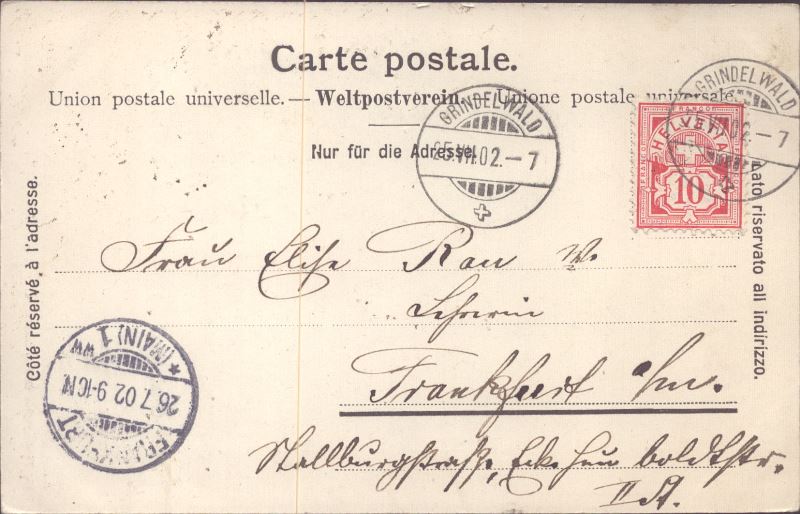 Carte postale.
Union postale universelle. — Weltpostverein. — Unione postale universale.
Nur für die Adresse.
Côté réservé à l'adresse.
Lato riservato all indirizzo.
GRINDELWALD
25.VII.02.–7
GRINDELWALD
VII.02.–7
FRANCO
HELVETIA
10
Frau Elise Rau W.
Lehrerin
Frankfurt /m.
Stallburgstraße, Ecke
II St.
FRANKFURT
26.7.02 9-10 N
* (MAIN) 1 WW